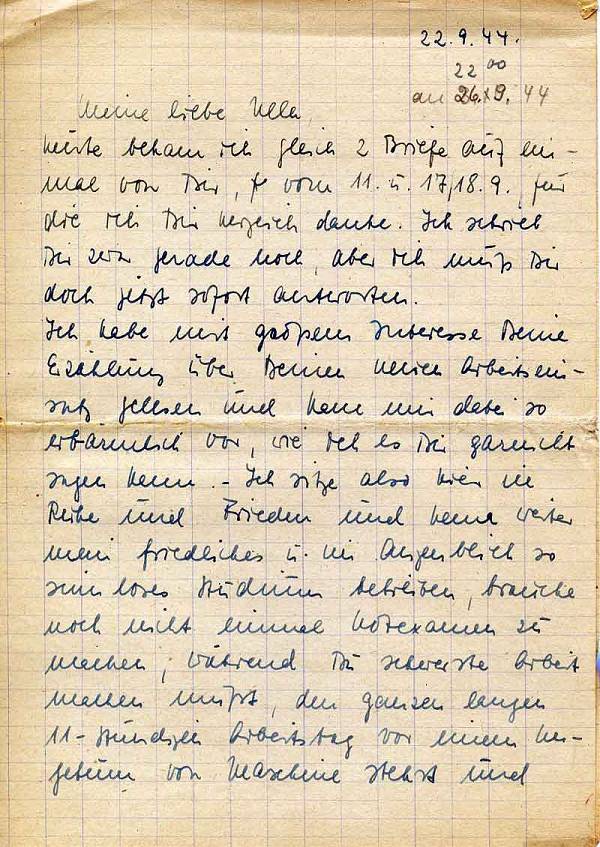 22.9.44.
22⁰⁰
an 26.9. 44
Meine liebe Ulla,
heute bekam ich gleich 2 Briefe auf ein-
mal von Dir, vom 11. u. 17/18.9., für
die ich Dir herzlich danke. Ich schrieb
Dir zwar gerade noch, aber ich muß Dir
doch jetzt sofort antworten.
Ich habe mit großem Interesse Deine
Erzählung über Deinen neuen Arbeitsein-
satz gelesen und kam mir dabei so
erbärmlich vor, wie ich es Dir garnicht
sagen kann. - Ich sitze also hier in
Ruhe und Frieden und kann weiter
mein friedliches u. im Augenblick so
sinnloses Studium betreiben, brauche
noch nicht einmal Notexamen zu
machen, während Du schwerste Arbeit
machen mußt, den ganzen langen
11-stündigen Arbeitstag vor einem Un-
getüm von Maschine stehst und